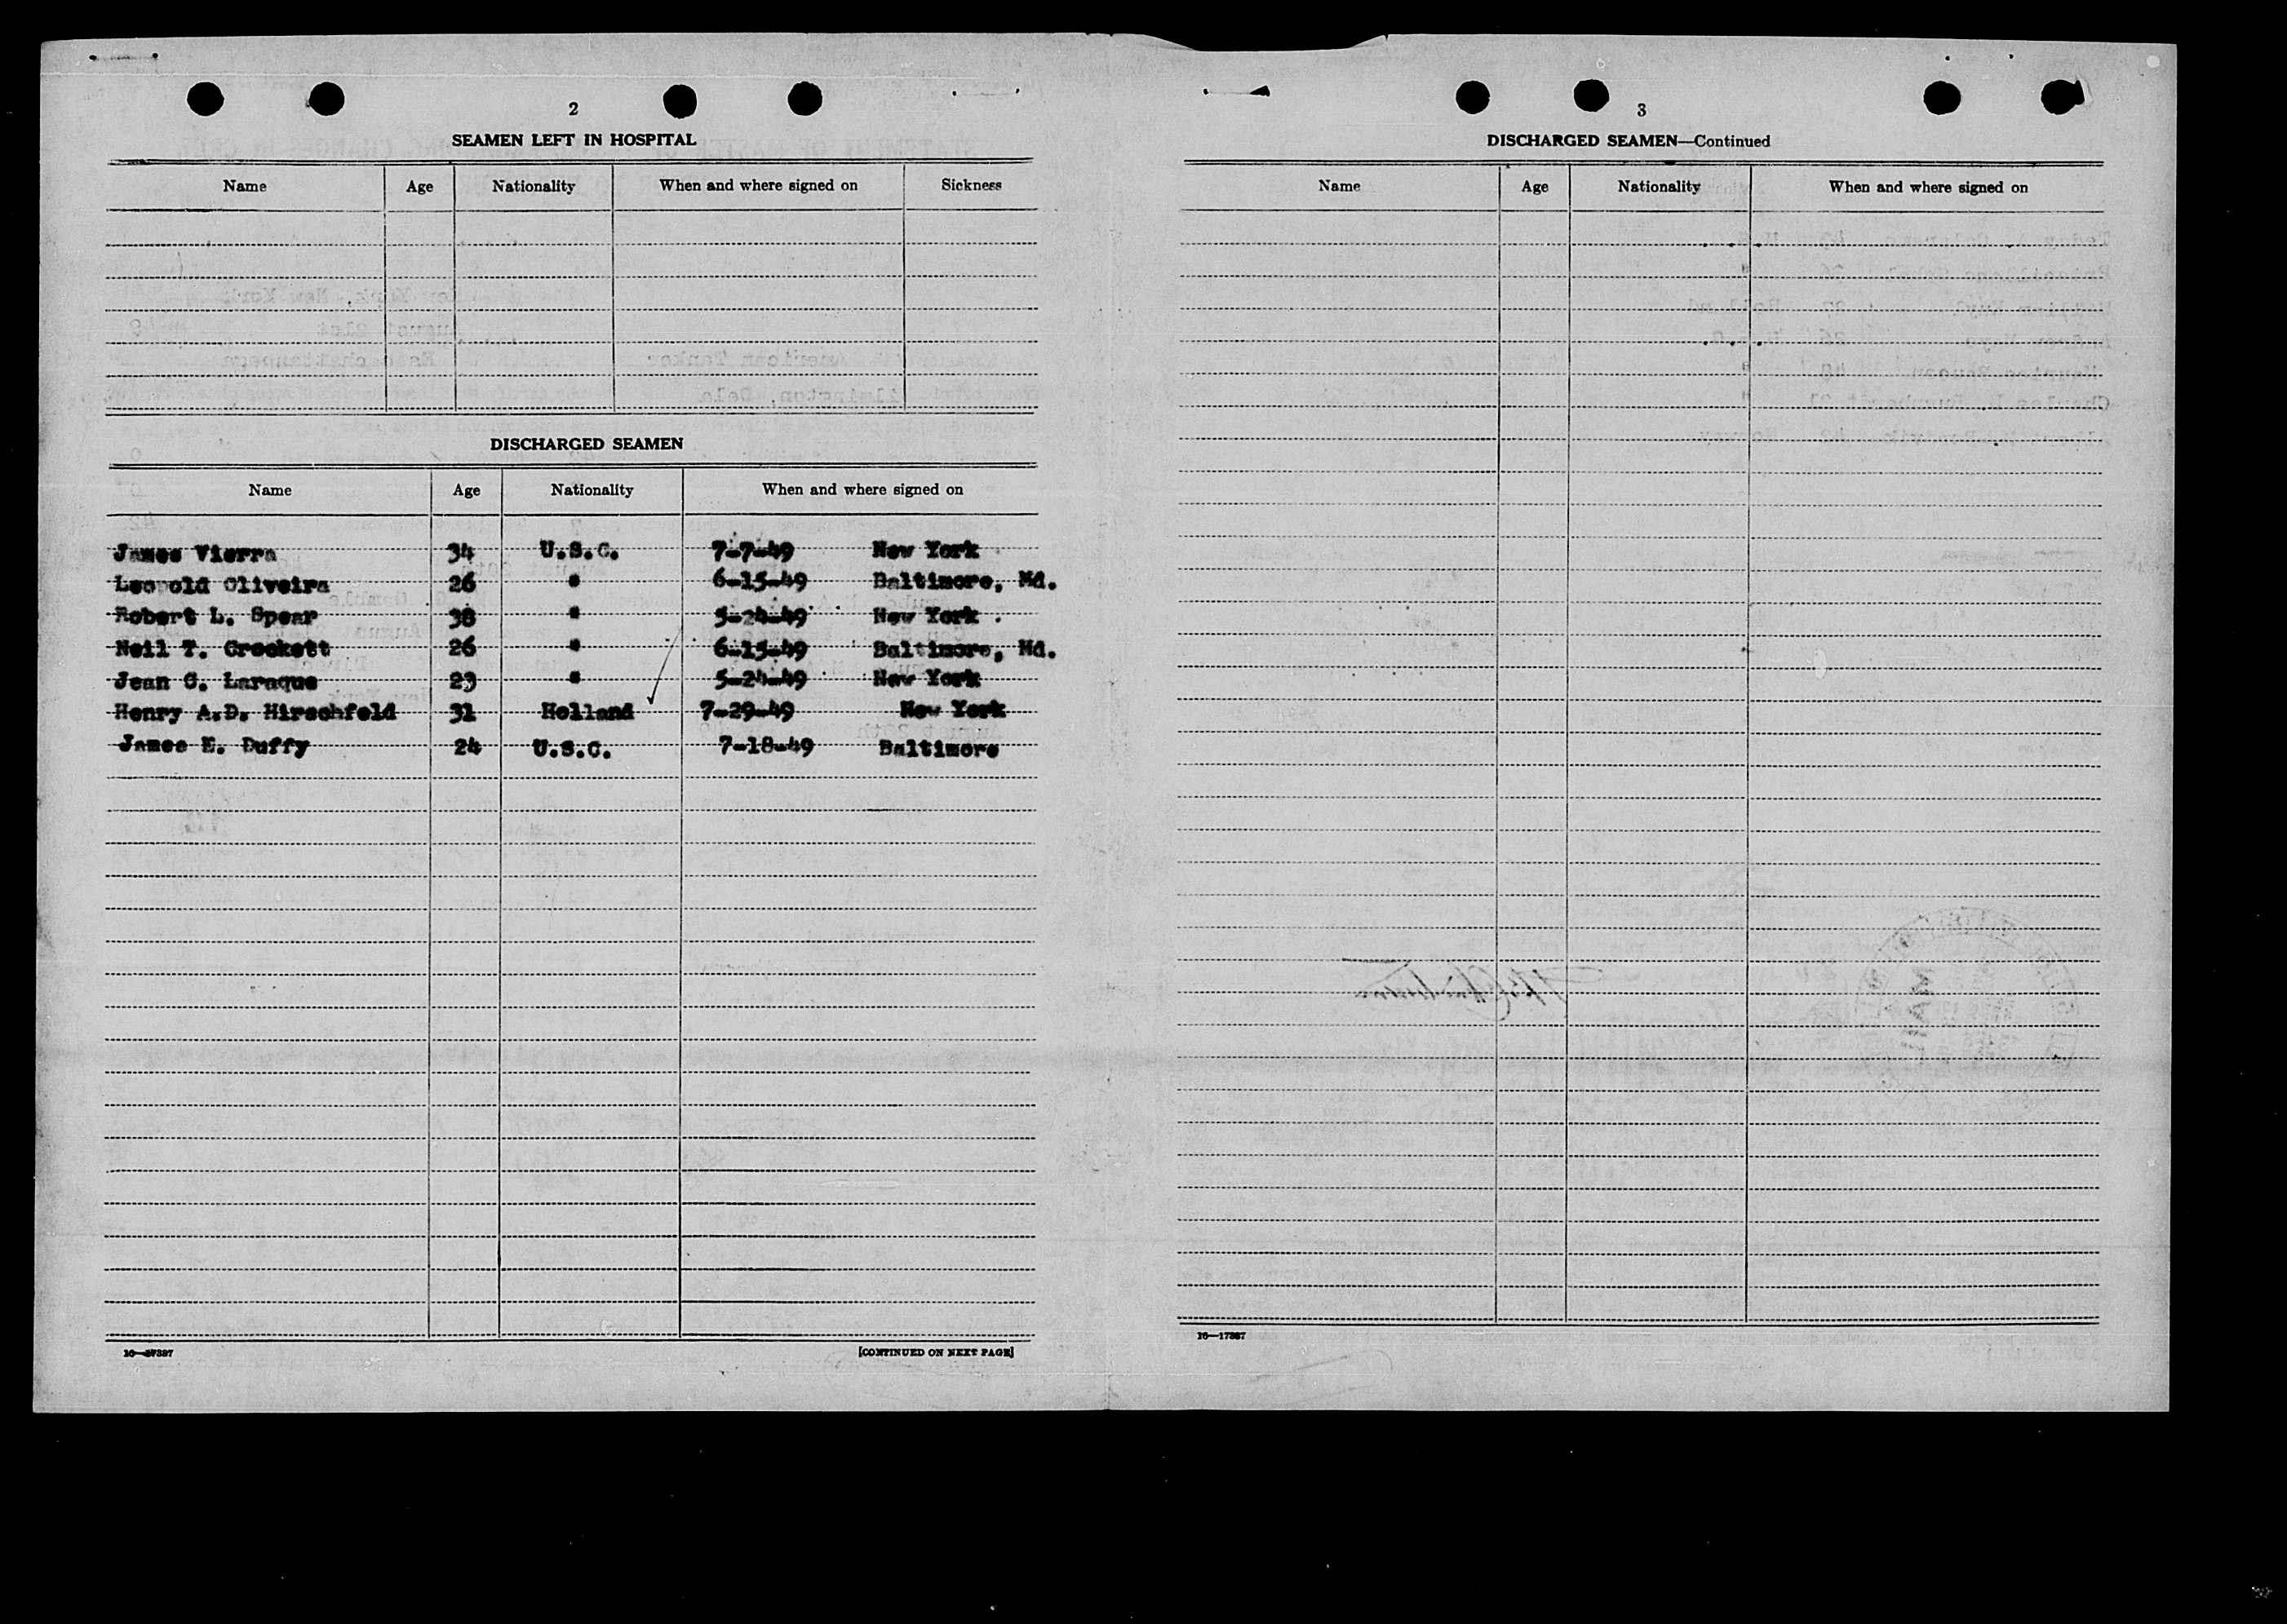 2
SEAMEN LEFT IN HOSPITAL
Name Age Nationality When and where signed on Sickness
DISCHARGED SEAMEN
Name Age Nationality When and where signed on
James Vierra 34 U.S.C. 7-7-49 New York
Leopold Oliveira 26 " 6-15-49 Baltimore, Md.
Robert L. Spear 38 " 5-24-49 New York
Neil T. Crockett 26 " 6-15-49 Baltimore, Md.
Jean C. Laraque 23 " 5-24-49 New York
Henry A.D. Hirschfeld 31 Holland 7-29-49 New York
James E. Duffy 24 U.S.C. 7-18-49 Baltimore
[CONTINUED ON NEXT PAGE]
3
DISCHARGED SEAMEN—Continued
Name Age Nationality When and where signed on
16—17387